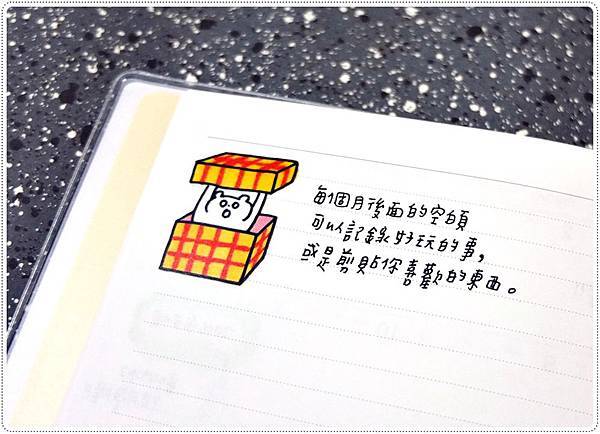 每個月後面的空頁
可以記錄好玩的事，
或是剪貼你喜歡的東西。